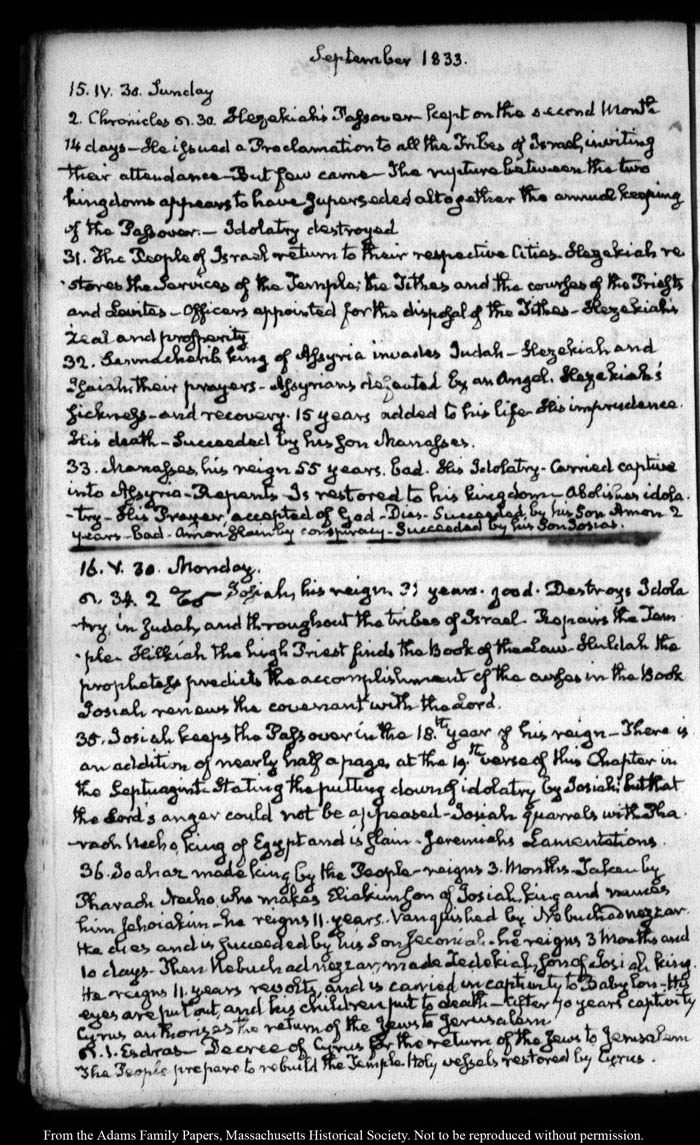 September 1833.
15. IV. 30. Sunday
2. Chronicles 30. Hezekiah's Passover kept on the second Month
14 days — He issued a Proclamation to all the Tribes of Israel, inviting
their attendance — But few came — The rupture between the two
kingdoms appears to have superseded altogether the annual keeping
of the Passover. — Idolatry destroyed
31. The People of Israel return to their respective Cities. Hezekiah re
-stores the services of the Temple; the Tithes and the courses of the Priests
and Levites — Officers appointed for the disposal of the Tithes — Hezekiah's
zeal and prosperity
32. Sennacherib, king of Assyria invades Judah — Hezekiah and
Isaiah, their prayers — Assyrians defeated by an Angel. Hezekiah's
sickness — and recovery. 15 years added to his life. His imprudence.
His death — Succeeded by his son Manasses.
33. Manasses, his reign 55 years. bad. His Idolatry — Carried captive
into Assyria — Repents — Is restored to his kingdom — Abolishes idola.
-try — His Prayer accepted of God — Dies — Succeeded by his Son Amon 2
years — bad — Amon slain by conspiracy — Succeeded by his Son Josias.
16. V. 30. Monday.
34. 2 Josiah, his reign 31 years. good. Destroys Idola
-try, in Judah, and throughout the tribes of Israel. Repairs the Tem
-ple. Hilkiah the high Priest finds the Book of the Law. Huldah the
prophetess predicts the accomplishment of the curses in the Book
Josiah renews the covenant with the Lord.
35. Josiah keeps the Passover in the 18.th year of his reign — There is
an addition of nearly half a page, at the 19.th verse of this Chapter in
the Septuagint. Stating the putting down of idolatry by Josiah; but that
the Lord's anger could not be appeased — Josiah quarrels with Pha
-raoh Necho, king of Egypt and is slain — Jeremiah's Lamentations.
36. Joahaz made king by the People — reigns 3. Months. Taken by
Pharaoh Necho, who makes Eliakim son of Josiah, king and names
him Jehoiakim — he reigns 11. years. Vanquished by Nebuchadnezzar.
He dies and is succeeded by his Son Jeconiah — he reigns 3 Months and
10 days — Then Nebuchadnezzar, made Zedekiah, son of Josiah king.
He reigns 11. years revolts, and is carried in captivity to Babylon — His
eyes are put out, and his children put to death — After 70 years captivity
Cyrus authorises the return of the Jews to Jerusalem.
1. Esdras — Decree of Cyrus for the return of the Jews to Jerusalem
The People prepare to rebuild the Temple. Holy vessels restored by Cyrus.
From the Adams Family Papers, Massachusetts Historical Society. Not to be reproduced without permission.